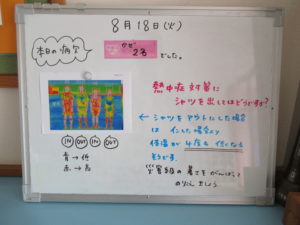 8月18日(火)
本日の病欠
かぜ
2名
でした。
熱中症対策に
シャツを出してはどうですか?
← シャツをアウトにした場合
は インした場合より
体温が 4度も 低くなる
そうです。
IN OUT IN OUT
青 → 低
赤 → 高
暑さをがんばって
のりこえましょう